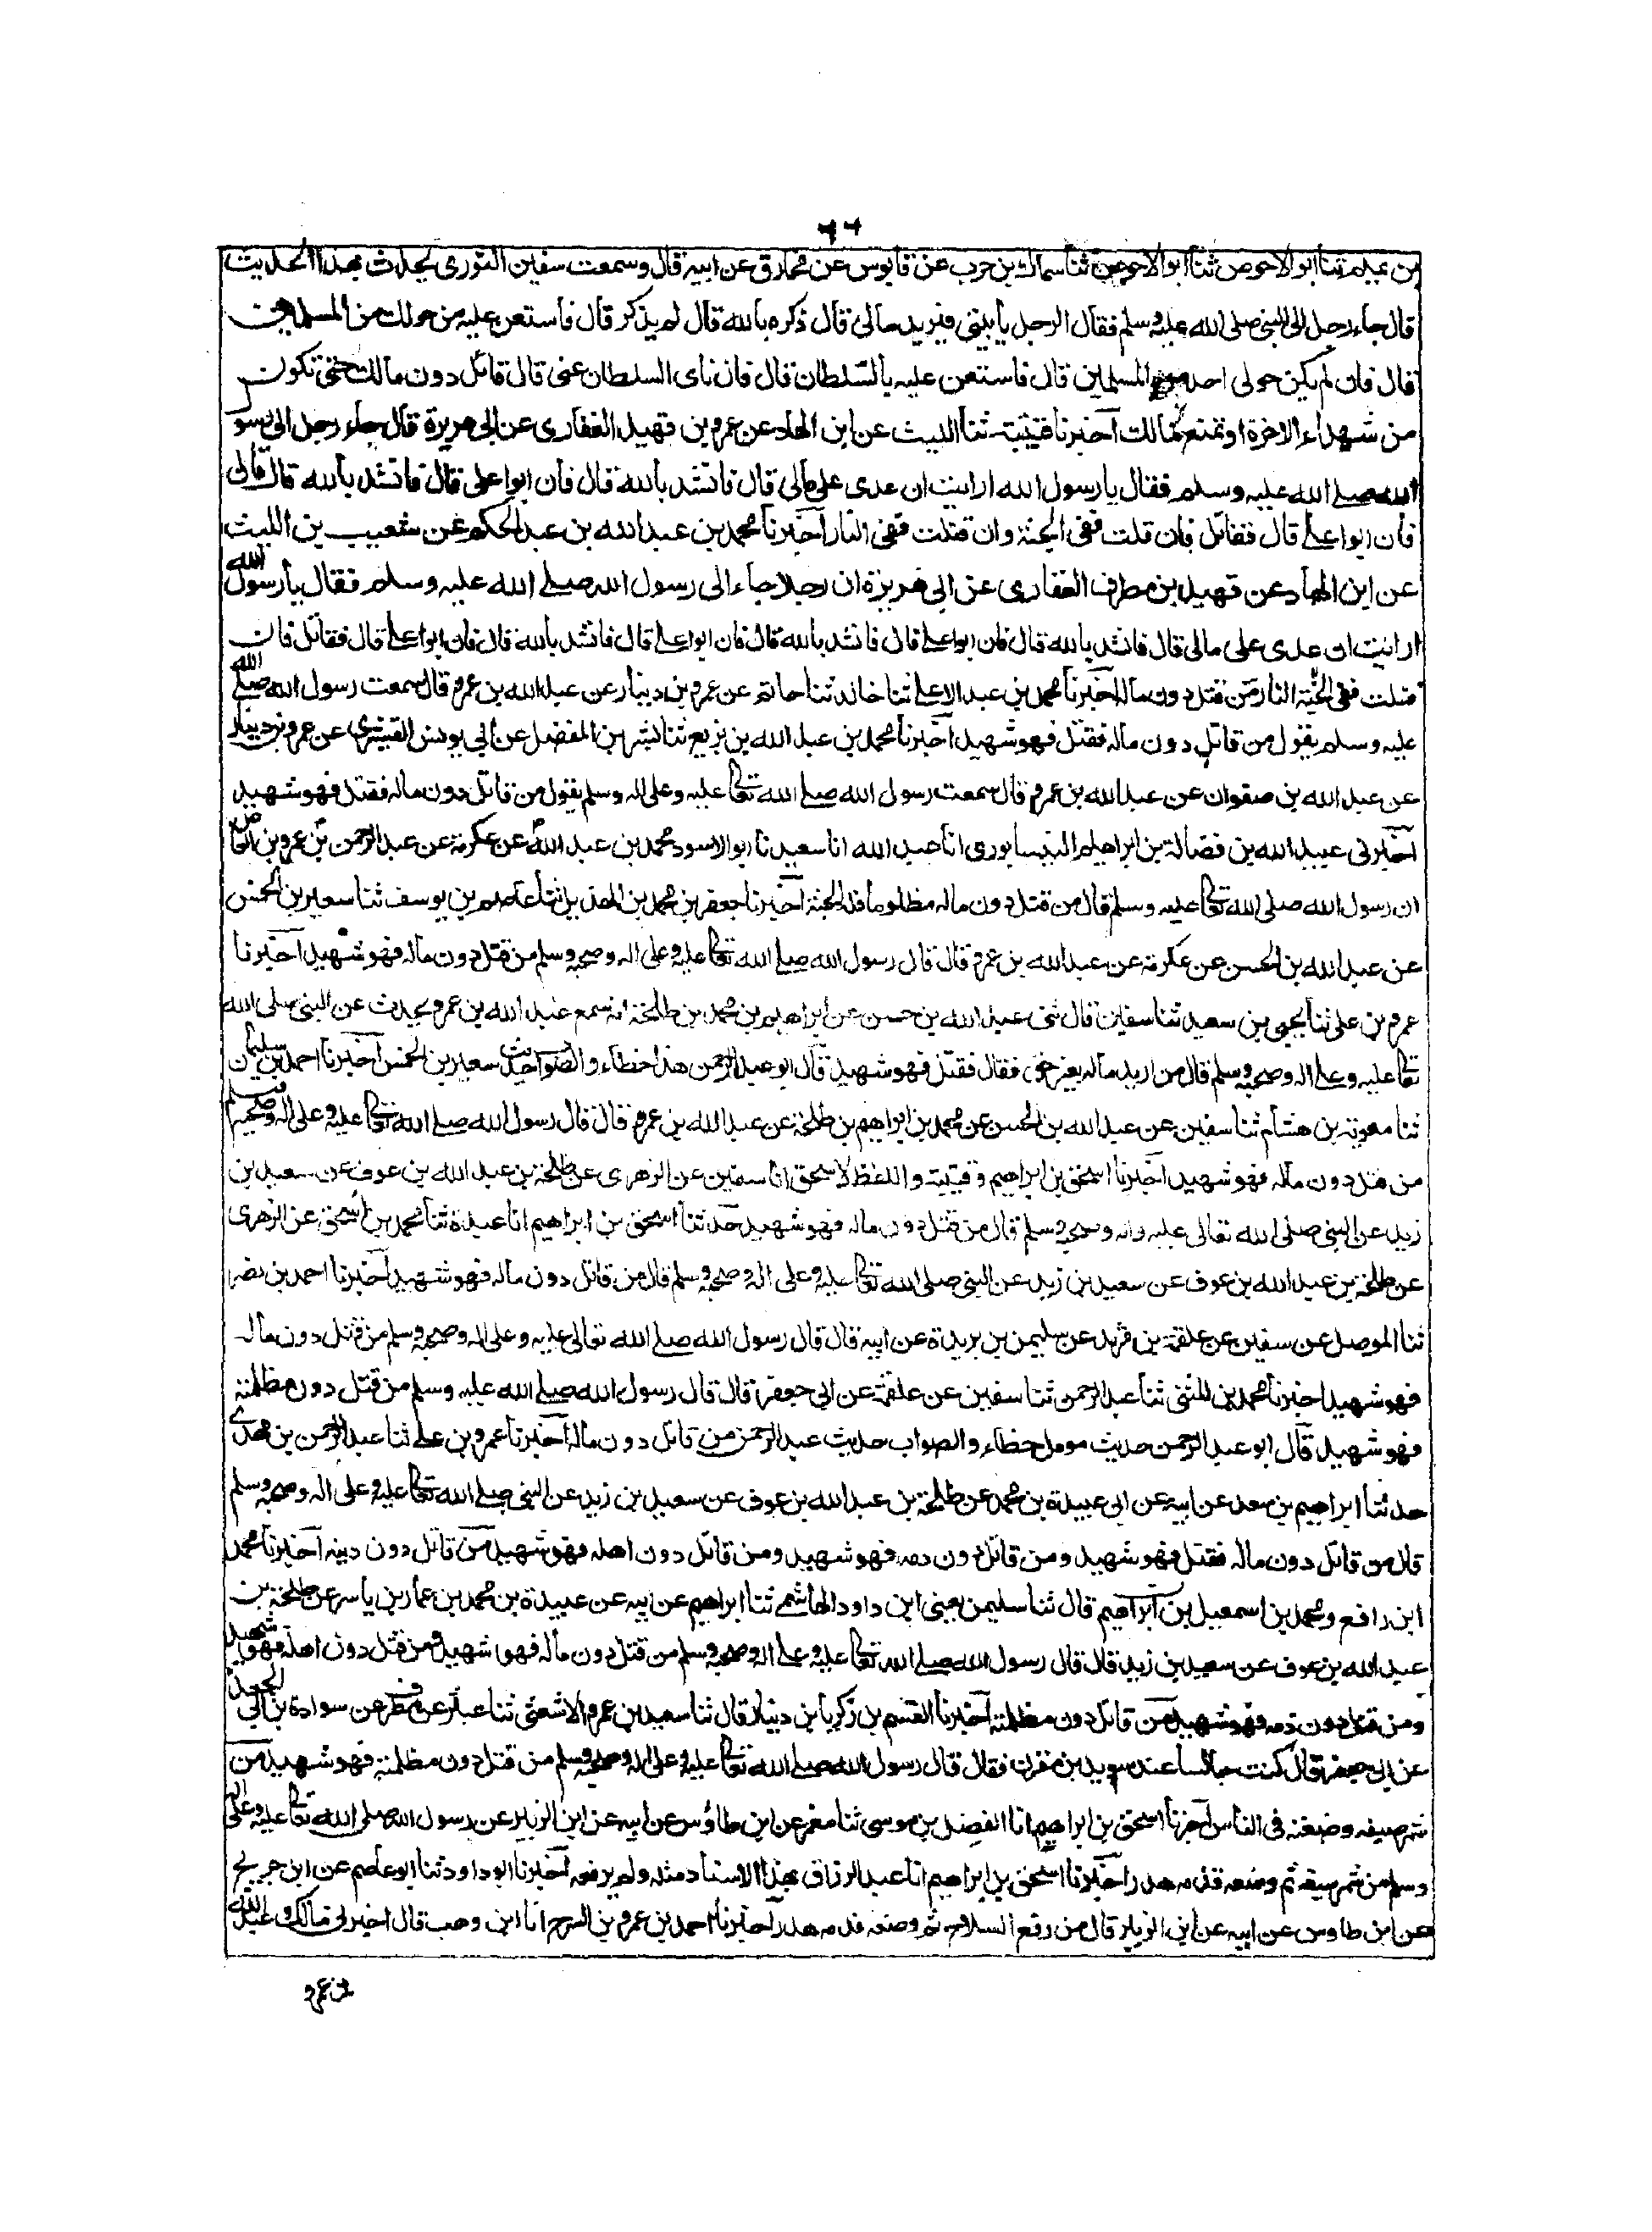 ٦٦
من تميم ثنا ابو الاحوص ثنا ابو الاحوص ثنا سماك بن حرب عن قابوس عن مخارق عن ابيه قال وسمعت سفين الثوري يحدث بهذا الحديث
قال جاء رجل الى النبي صلى الله عليه وسلم فقال الرجل يأتيني فيريد مالي قال ذكره بالله قال لم يذكر قال فاستعن عليه من حولك من المسلمين
قال فان لم يكن حولي احد من المسلمين قال فاستعن عليه بالسلطان قال فان نأى السلطان عني قال قاتل دون مالك حتى تكون
من شهداء الاخرة او تمنع مالك اخبرنا قتيبة ثنا الليث عن ابن الهاد عن عمرو بن قهيد الغفاري عن ابي هريرة قال جاء رجل الى رسو
الله صلى الله عليه وسلم فقال يا رسول الله ارايت ان عدى على مالي قال فانشد بالله قال فان ابوا علي قال فانشد بالله قال فان
فان ابوا علي قال فقاتل فان قتلت ففي الجنة وان قتلت ففي النار اخبرنا محمد بن عبد الله بن عبد الحكم عن شعيب بن الليث
عن ابن الهاد عن قهيد بن مطرف الغفاري عن ابي هريرة ان رجلا جاء الى رسول الله صلى الله عليه وسلم فقال يا رسول الله
ارايت ان عدى على مالي قال فانشد بالله قال فان ابوا علي قال فانشد بالله قال فان ابوا علي قال فانشد بالله قال فان ابوا علي قال فقاتل فان
قتلت ففي الجنة النار من قتل دون ماله اخبرنا محمد بن عبد الاعلى ثنا خالد ثنا حاتم عن عمرو بن دينار عن عبد الله بن عمرو قال سمعت رسول الله صلى الله
عليه وسلم يقول من قاتل دون ماله فقتل فهو شهيد اخبرنا محمد بن عبد الله بن بزيع ثنا بشر بن المفضل عن ابي يونس القشيري عن عمرو بن دينار
عن عبد الله بن صفوان عن عبد الله بن عمرو قال سمعت رسول الله صلى الله تعالى عليه وعلى اله وسلم يقول من قاتل دون ماله فقتل فهو شهيد
اخبرني عبيد الله بن فضالة بن ابراهيم النيسابوري انا عبد الله انا سعيد نا ابو الاسود محمد بن عبد الله عن عكرمة عن عبد الرحمن بن عمرو بن العاص
ان رسول الله صلى الله تعالى عليه وسلم قال من قتل دون ماله مظلوما فله الجنة اخبرنا جعفر بن محمد بن الهذيل ثنا عاصم بن يوسف ثنا سعير بن الخمس
عن عبد الله بن الحسن عن عكرمة عن عبد الله بن عمرو قال قال رسول الله صلى الله تعالى عليه وعلى اله وصحبه وسلم من قتل دون ماله فهو شهيد اخبرنا
عمرو بن علي ثنا يحيى بن سعيد ثنا سفين قال ثني عبد الله بن حسن عن ابراهيم بن محمد بن طلحة انه سمع عبد الله بن عمرو يحدث عن النبي صلى الله
تعالى عليه وعلى اله وصحبه وسلم قال من اريد ماله بغير حق فقال فقتل فهو شهيد قال ابو عبد الرحمن هذا خطاء والصواب حديث سعير بن الخمس اخبرنا احمد بن سليمان
ثنا معوية بن هشام ثنا سفين عن عبد الله بن الحسن عن محمد بن ابراهيم بن طلحة عن عبد الله بن عمرو قال قال رسول الله صلى الله تعالى عليه وعلى اله وصحبه وسلم
من قتل دون ماله فهو شهيد اخبرنا اسحق بن ابراهيم وقتيبة واللفظ لاسحق انا سفين عن الزهري عن طلحة بن عبد الله بن عوف عن سعيد بن
زيد عن النبي صلى الله تعالى عليه واله وصحبه وسلم قال من قتل دون ماله فهو شهيد حدثنا اسحق بن ابراهيم انا عبدة ثنا محمد بن اسحق عن الزهري
عن طلحة بن عبد الله بن عوف عن سعيد بن زيد عن النبي صلى الله تعالى عليه وعلى اله وصحبه وسلم قال من قاتل دون ماله فهو شهيد اخبرنا احمد بن نصر
ثنا الموصل عن سفين عن علقمة بن مرثد عن سليمن بن بريدة عن ابيه قال قال رسول الله صلى الله تعالى عليه وعلى اله وصحبه وسلم من قتل دون ماله
فهو شهيد اخبرنا محمد بن المثنى ثنا عبد الرحمن ثنا سفين عن علقمة عن ابي جعفر قال قال رسول الله صلى الله عليه وسلم من قتل دون مظلمته
فهو شهيد قال ابو عبد الرحمن حديث مومل خطاء والصواب حديث عبد الرحمن من قاتل دون ماله اخبرنا عمرو بن علي ثنا عبد الرحمن بن مهدي
حدثنا ابراهيم بن سعد عن ابيه عن ابي عبيدة بن محمد عن طلحة بن عبد الله بن عوف عن سعيد بن زيد عن النبي صلى الله تعالى عليه وعلى اله وصحبه وسلم
قال من قاتل دون ماله فقتل فهو شهيد ومن قاتل دون دمه فهو شهيد ومن قاتل دون اهله فهو شهيد من قاتل دون دينه اخبرنا محمد
ابن رافع ومحمد بن اسمعيل بن ابراهيم قال ثنا سليمن يعني ابن داود الهاشمي ثنا ابراهيم عن ابيه عن عبيدة بن محمد بن عمار بن ياسر عن طلحة بن
عبد الله بن عوف عن سعيد بن زيد قال قال رسول الله صلى الله تعالى عليه وعلى اله وصحبه وسلم من قتل دون ماله فهو شهيد ومن قتل دون اهله فهو شهيد
ومن قتل دون دمه فهو شهيد من قاتل دون مظلمته اخبرنا القسم بن زكريا بن دينار قال ثنا سعيد بن عمرو الاشعثي ثنا عبثر عن مطرف عن سوادة بن ابي الجعد
عن ابي جعفر قال كنت جالسا عند سويد بن مقرن فقال قال رسول الله صلى الله تعالى عليه وعلى اله وصحبه وسلم من قتل دون مظلمته فهو شهيد من
شهر سيفه وضعه في الناس اخبرنا اسحق بن ابراهيم انا الفضل بن موسى ثنا معمر عن ابن طاؤس عن ابيه عن ابن الزبير عن رسول الله صلى الله تعالى عليه وعلى اله
وسلم من شهر سيفه ثم وضعه فدمه هدر اخبرنا اسحق بن ابراهيم انا عبد الرزاق بهذا الاسناد مثله ولم يرفعه اخبرنا ابو داود ثنا ابو عاصم عن ابن جريج
عن ابن طاوس عن ابيه عن ابن الزبير قال من رفع السلاح ثم وضعه فدمه هدر اخبرنا احمد بن عمرو بن السرح انا ابن وهب قال اخبرني مالك وعبد الله
بن عمرو